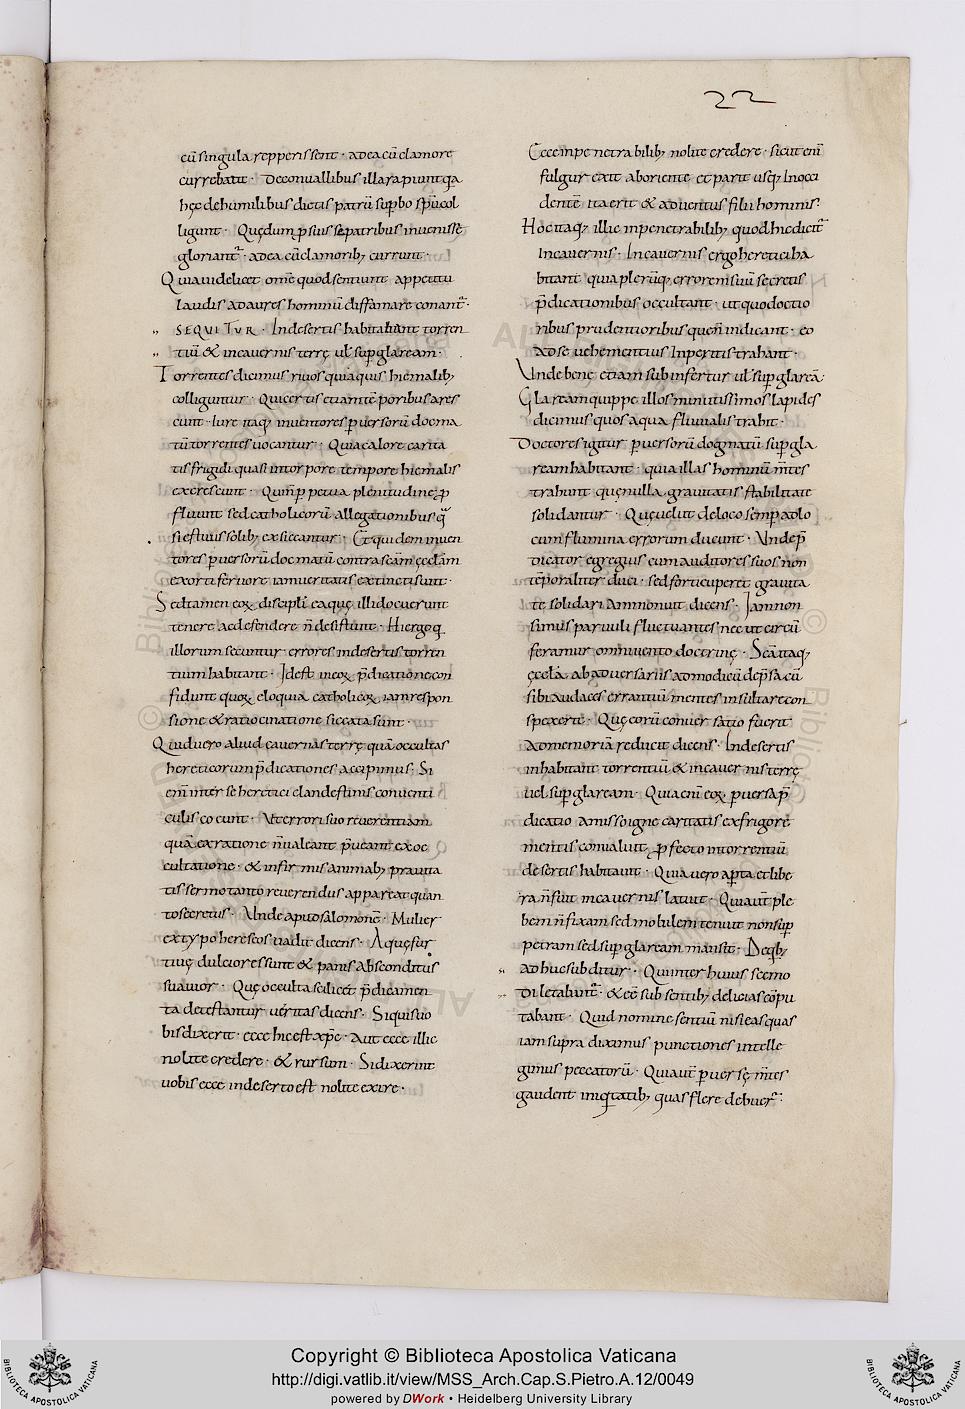 22
cū singula repperissent · ad ea cū clamore
currebant · De conuallibus illa rapiunt q̄a
hęc de humilibus dictis patrū sup̲bo sp̄u col
ligunt · Quędum p̲ sius se patribus inuenisse
gloriant᷑ · ad ea cū clamorib; currunt ·
Quia uidelicet om̄e quod sentiunt appetitu
laudis ad aures hominū diffamare conant᷑ ·
SEQUITUR · In desertis habitabant torren
tiū & in cauernis terrę ul̄ sup̲ glaream ·
Torrentes dicimus riuos qui aquis hiemalib;
colliguntur · Qui certis etiam tēporibus ares
cunt · Iure itaq; inuentores p̲uersorū docma
tū torrentes uocantur · Quia calore carita
tis frigidi quasi in torpore tempore hiemalis
excrescunt · Qui n̄ p̲petua plenitudine p̲
fluunt sed catholicorū allegationibus q̄
si estiuis solib; exsiccantur · Et quidem inuen
tores p̲uersorū docmatū contra sc̄am ęccl̄am
exorti feruore iam ueritatis extincti sunt ·
Sed tamen eoꝝ discipli ea quę illi docuerunt
tenere ac defendere n̄ desistunt · Hi ergo q̲
illorum secuntur errores in desertis torren
tium habitant · Id est in eoꝝ p̄dicatione con
fidunt quoꝝ eloquia catholicoꝝ iam respon
sione & ratiocinatione siccata sunt ·
Quid uero aliud cauernas terrę quā occultas
hereticorum p̄dicationes accipimus · Si
em̄ inter se heretici clandestinis conuenti
culis coeunt · Ut errori suo reuerentiam
quā ex ratione n̄ ualeant p̄ueant ex oc
cultatione · & infirmis animab; prauita
tis sermo tanto reuerendus appareat quan
to secretus · Unde apud salomonē · Mulier
ex typo hereseos uadit dicens · Aquę fur
tiuę dulciores sunt & panis absconditus
suauior · Quę occulta scilicet p̄dicamen
ta detestantur ueritas dicens · Si quis uo
bis dixerit · ecce hic est xp̄c · Aut ecce illic
nolite credere · & rursum · Si dixerint
uobis ecce in deserto est nolite exire ·
Ecce in penetrabilib; nolite credere · sicut eni
fulgur exit ab oriente et parit usq; In occi
dentē ita erit & aduentus filii hominis ·
Hoc itaq; illic in penetrabilib; quod hic dicit᷑
In cauernis · In cauernis ergo heretici ha
bitant quia plerūq; errorem suū secretis
p̄dicationibus occultant · ut quo doctio
ribus prudentioribus quem̄ indicant · eo
ad se uehementius Inperitis trahant ·
Unde bene etiam subinfertur ul̄ sup̲ glareā ·
Glaream quippe illos minutissimos lapides
dicimus quos aqua fluuialis trahit ·
Doctores igitur p̲uersorū dogmatū sup̲ gla
ream habitant · quia illas hominū m̄tes
trahunt quę nulla grauitatis stabilitate
solidantur · Quę uelut de loco semp̲ ad lo
cum flumina errorum ducunt · Unde p̄
dicator egregius eum auditores suos non
tēporaliter duci · sed forti cuperet grauita
te solidari ammonuit dicens · Iam non
simus paruuli fluctuantes nec ut circū
feramur omni uento doctrinę · Sc̄a itaq;
ęccl̄a ab aduersariis ad modicū dep̄sa cū
sibi audaces errantiū mentes insultare con
spexerit · Quę eorū conuersatio fuerit
ad memoriā reducit dicens · In desertis
inhabitant torrentiū & in cauernis terrę
uel sup̲ glaream · Quia eni eoꝝ p̲uersa p̄
dicatio amisso igne caritatis ex frigore
mentis conualuit p̲fecto in torrentiū
desertis habitauit · Quia uero ap̲ta et libe
ra n̄ fuit in cauernis latuit · Quia aut̄ ple
bem n̄ fixam sed mobilem tenuit non sup̲
petram sed sup̲ glaream mansit · De qb;
adhuc subditur · Qui inter huius scemo
di letabunt᷑ · & eē sub sentib; delicias cōpu
tabant · Quid nomine sentiū nisi eas quas
iam supra diximus punctiones intelle
gimus peccatorū · Quia aut̄ p̲uersę m̄tes
gaudent iniq̲tatib; quas flere debuer̄ ·
Copyright © Biblioteca Apostolica Vaticana
http://digi.vatlib.it/view/MSS_Arch.Cap.S.Pietro.A.12/0049
powered by DWork • Heidelberg University Library